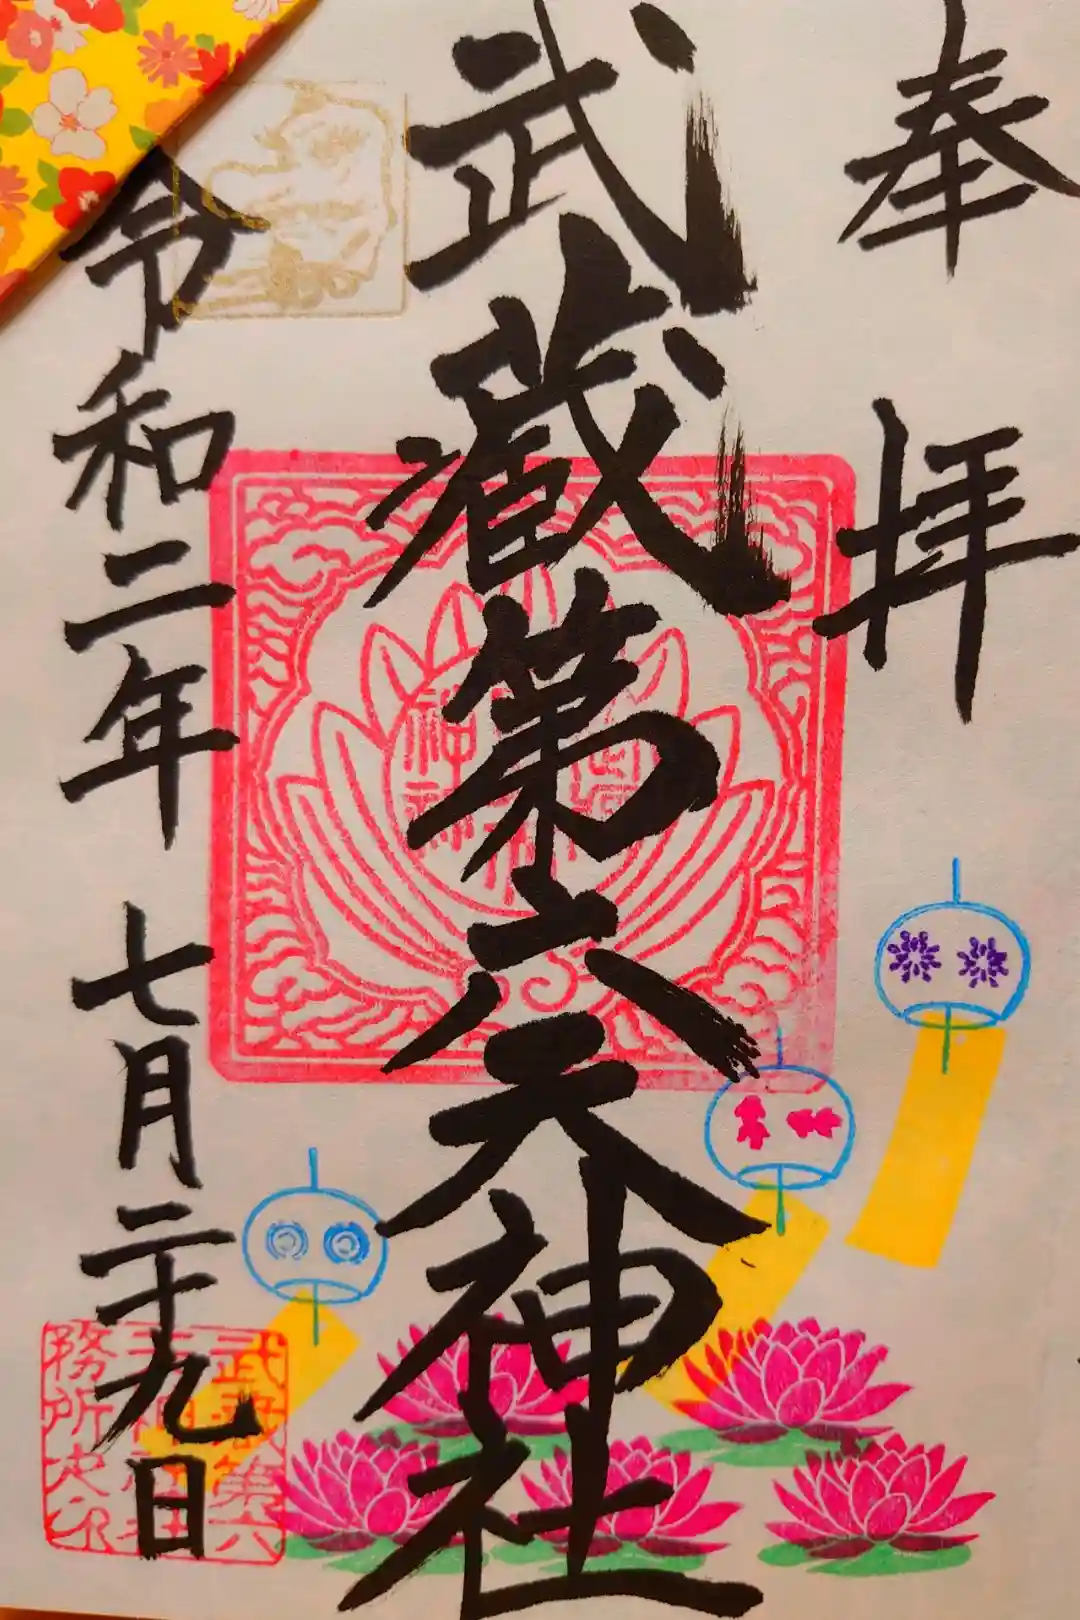 奉拝
武蔵第六天神社
令和二年七月二十九日
武蔵第六
天神社社
務所之印